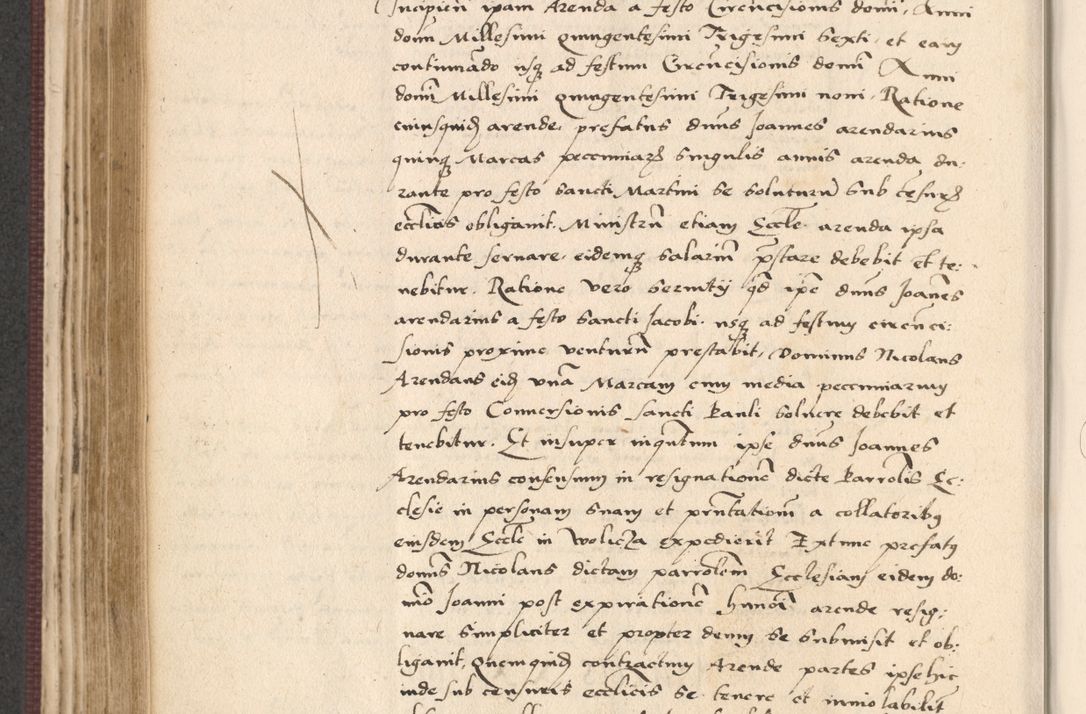 Incipien ipam Arenda a festo Circucisionis domi, Anni
domi Millesimi quingentesimi Trigesimi sexti, et eam
continuado usq ad festum Circucisionis domi Anni
domi Millesimi quingentesimi Trigesimi noni, Ratione
cuiusquid arende, prefatus dnus Joannes arendarius
quinq Marcas pecuniar singulis annis arenda du-
rante pro festo Sancti Martini se soluturu sub cesur
ecclias obligauit. Ministru etiam Eccle arenda ipsa
durante seruare, eidemq salariu pstare debebit et te-
nebitur. Ratione vero seruitij qd ipe dnus Joanes
arendarius a festo Sancti Jacobi, usq ad festum circuci:
sionis proxime venturu prestabit, Dominus Nicolaus
Arendans eid una Marcam cum media pecuniarum
pro festo Conuersionis sancti Pauli soluere debebit et
tenebitur. Et insuper inqutum ipse dnus Joannes
Arendarius consensum in resignatione dicte Parrolis Ec:
clesie in personam suam et pntationi a collatoribq
eiusdem Eccle in Wolicza expedierit Extunc prefatq
domus Nicolaus dictam parrolem Ecclesiam eidem do:
mio Joanni post expiratione hmoi arende resig:
nare simpliciter et propter deum se submisit et ob:
ligauit, Quemquid contractum Arende partes ipse hic
inde sub censuris ecclicis se tenere et inuiolabilit